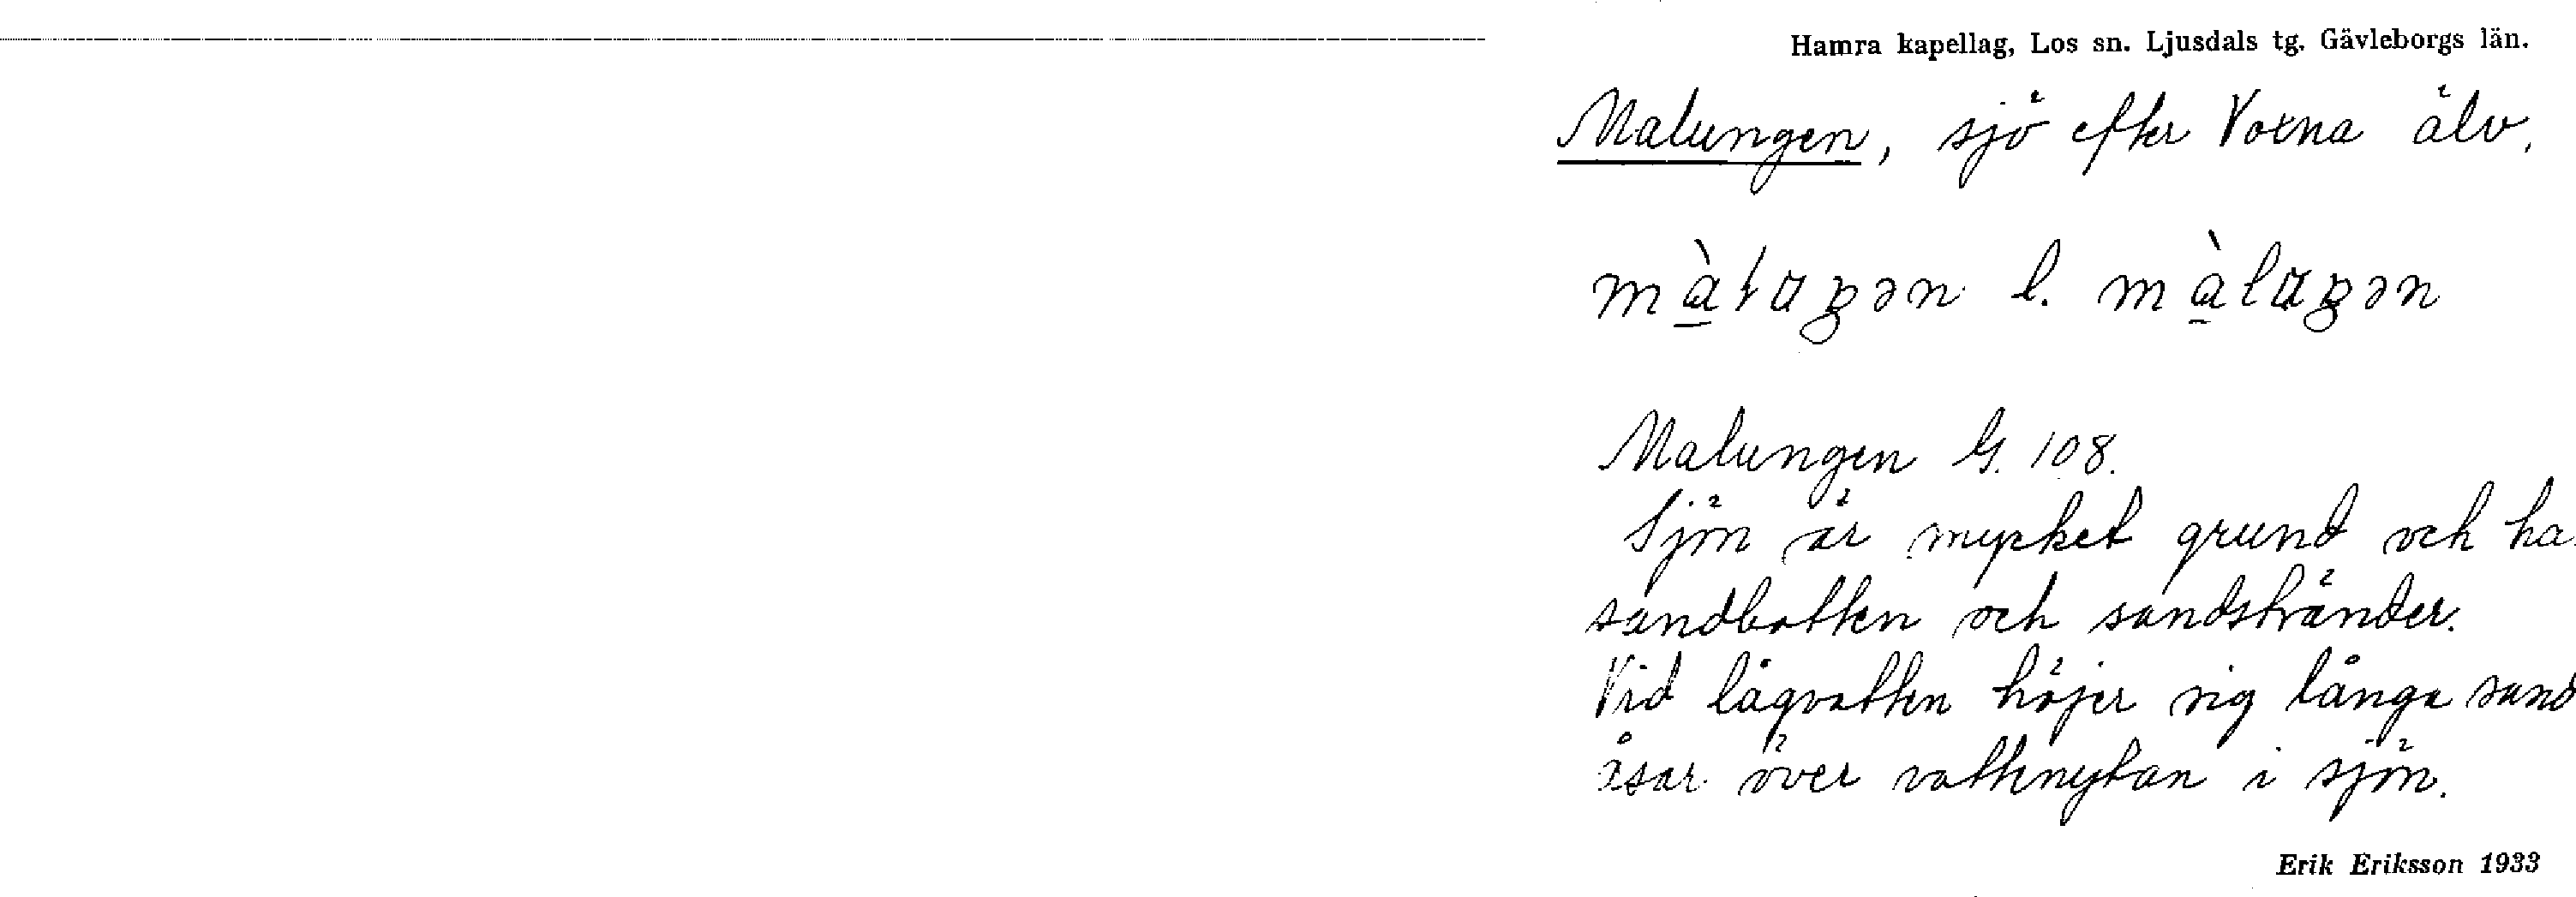 Hamra kapellag, Los sn. Ljusdals tg. Gävleborgs län.
Malungen, sjö efter Voxna älv.
l.
Malungen G. 108.
Sjön är mycket grund och ha
sandbotten och sandstränder.
Vid lågvatten höjer sig långa sand
åsar över vattenytan i sjön.
Erik Eriksson 1933